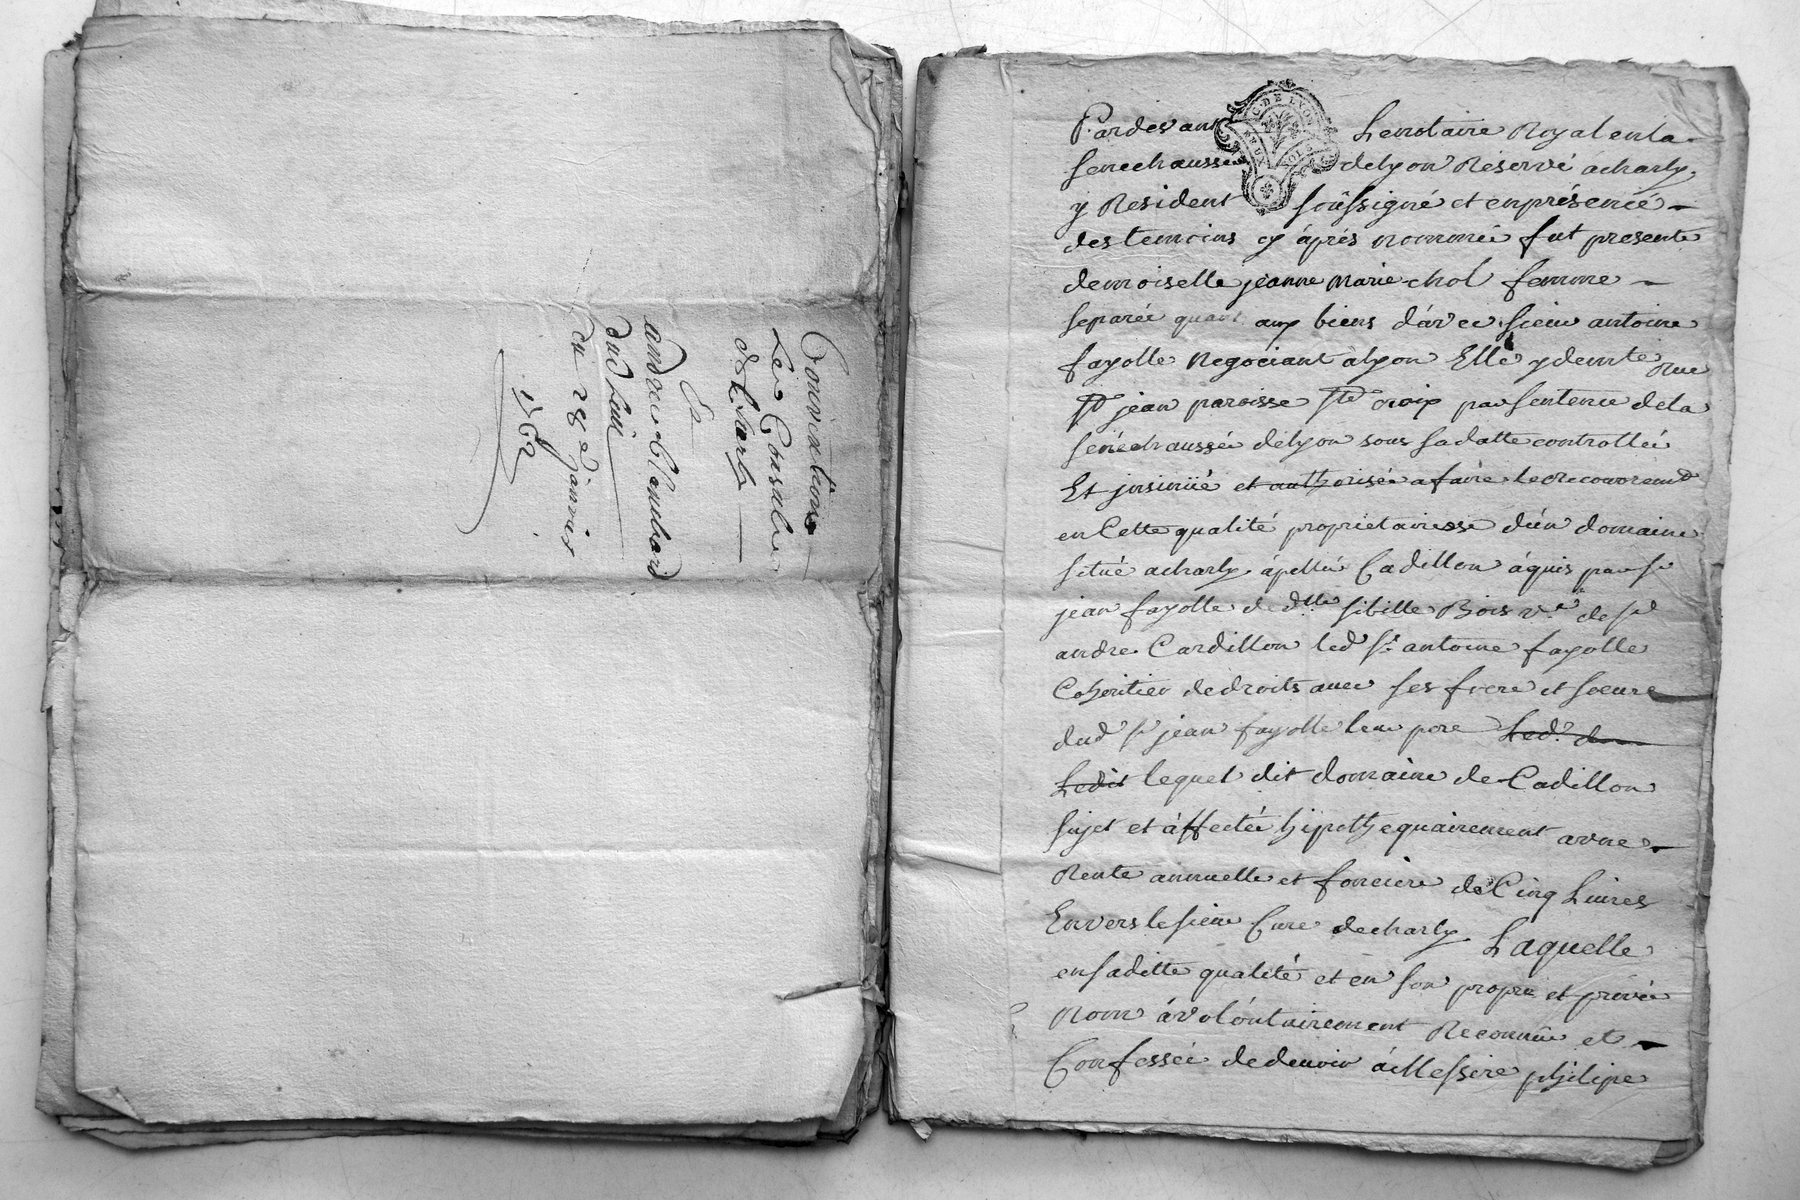 Convention
Les Consuls
de Charly
Et
andré Blanchard
dud lieu
du 28e janvier
1762
G. DE LYON
DEUX SOLS
Pardevant Le notaire Royal en la
senechaussée de lyon Réservé a charly
y Resident soûssigné et en présence
des temoins cy áprés nommée fut presente
demoiselle jeanne Marie chol femme
separée quant aux biens d'avec sieur antoine
fayolle Negociant a lyon Elle y demte Rue
St jean paroisse Ste croix par sentence de la
senéchaussée de lyon sous sa datte controllée
Et jnsinüé et authorisée a faire le recouvremt
en Cette qualité proprietairesse d'ún domaine
situé a charly ápellée Cadillon áquis par sr
jean fayolle de dlle sibille Bois ve de sr
andre Cardillon led sr antoine fayolle
Cohéritier de droits avec ses frere et soeurs
dud sr jean fayolle leur pere Led.
Ledit lequel dit domaine de Cadillon
sujet et áffectée hipothequairement a une
Rente annuelle et fonciere de Cinq Livres
Envers le sieur Curé de charly Laquelle
en saditte qualité et en son propre et privée
Nom á volóntairement Reconnûe et
Confessée de devoir á Messire philipe